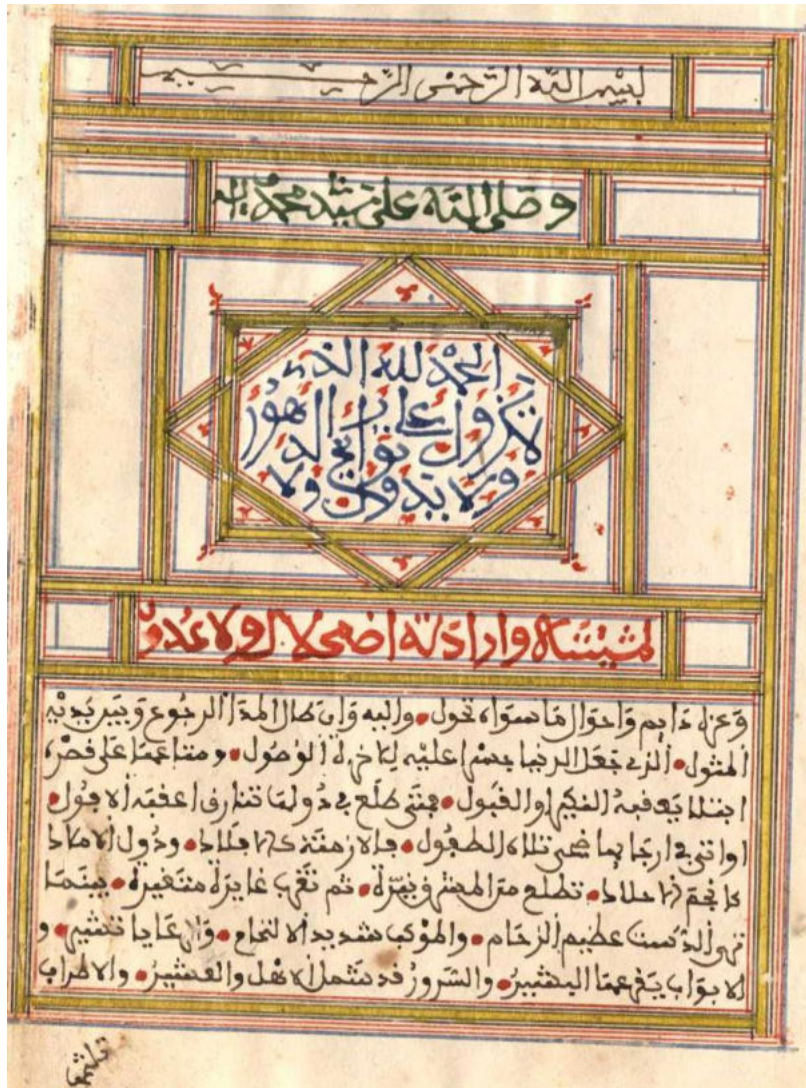 بسم الله الرحمن الرحيم
وصلى الله على سيدنا محمد وآله
الحمد لله الذي
لا يزول على مر الدهور
ولا
لمشيئته وارادته اضمحلال ولا عدول
وعزه دايم واحوال ما سواه تحول • واليه وان طال المدا الرجوع وبين يديه
المثول • الذي جعل الدنيا جسرا عليه للاخرة الوصول • ومتاعها على قصره
ابتلا يعقبه والقبول • فمتى طلع في دولها تنارق اعقبه الافول •
اواتى في ارجايها ضحى تلاه الطفول • فالازمنة كالافلاك • ودول الاملاك
كانجم الاحلاك • تطلع من المشرق نيرة • ثم تغرب غايرة متغيرة • بينما
ترى الدست عظيم الزحام • والموكب شديد الالتحام • والرعايا تشير • و
الابواب يقرعها البشير • والسرور قد شمل الاهل والعشير • والاطراب